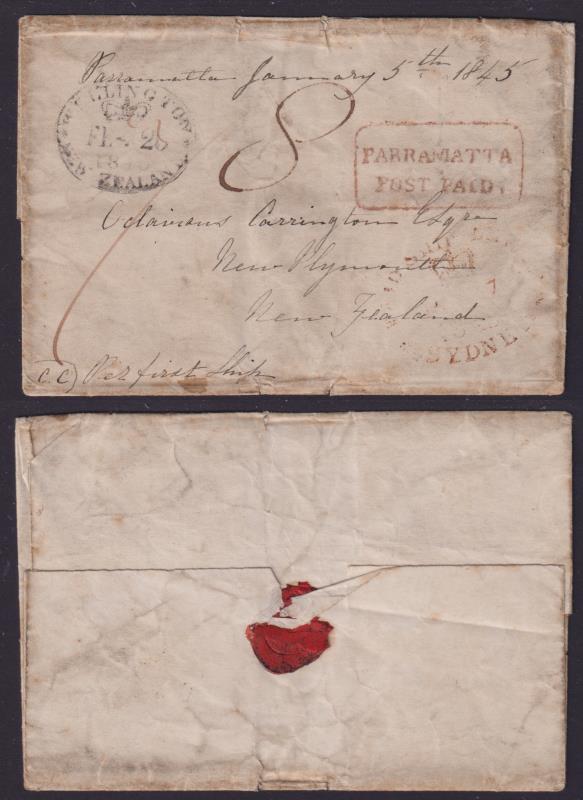 Parramatta January 5th 1845
WELLINGTON
FE 26
18
NEW ZEALAND
8
PARRAMATTA
POST PAID
Octavious Carrington Esqre
New Plymouth
New Zealand
SYDNEY
(C.C) Per first Ship